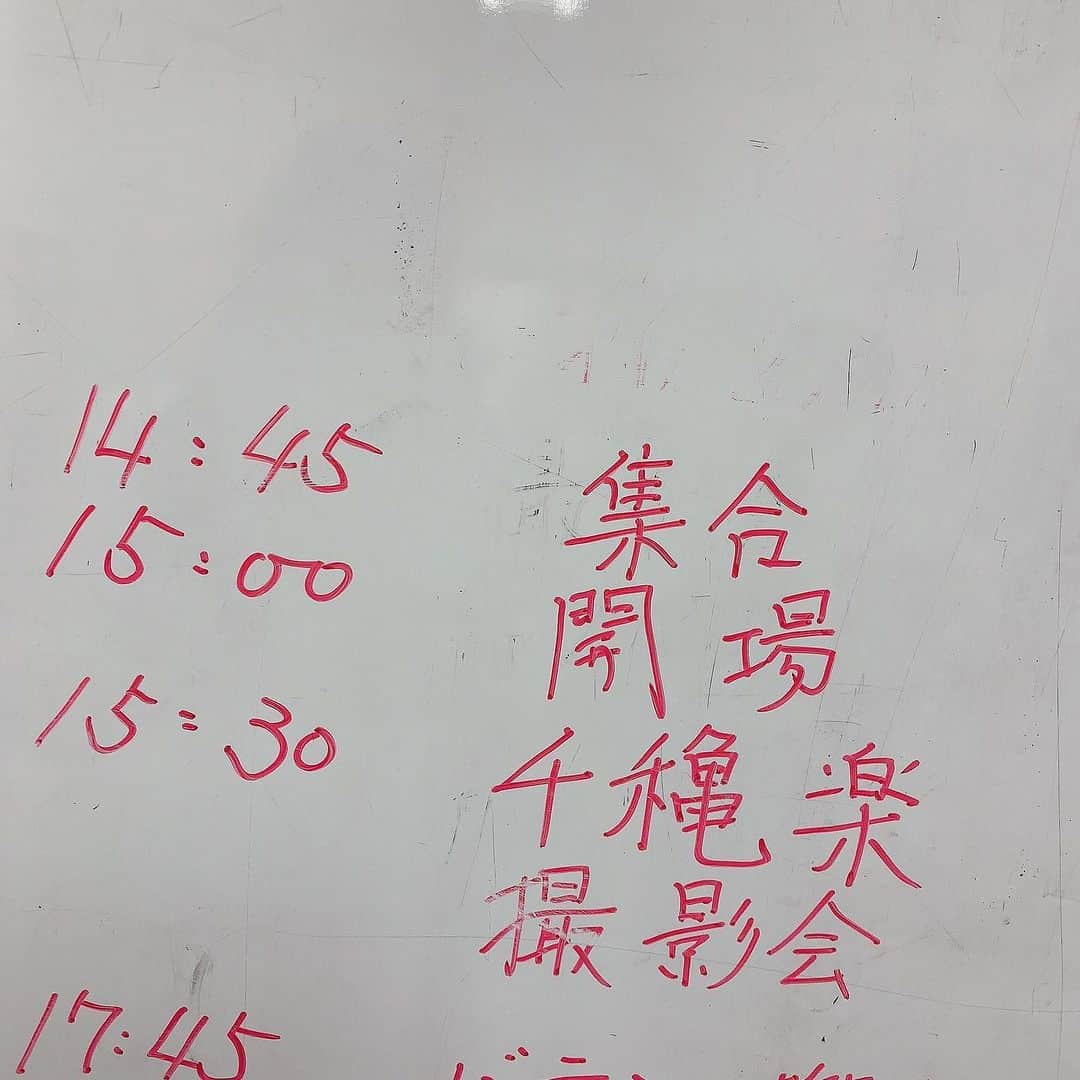 14:45 集合
15:00 開場
15:30 千穐楽
撮影会
17:45